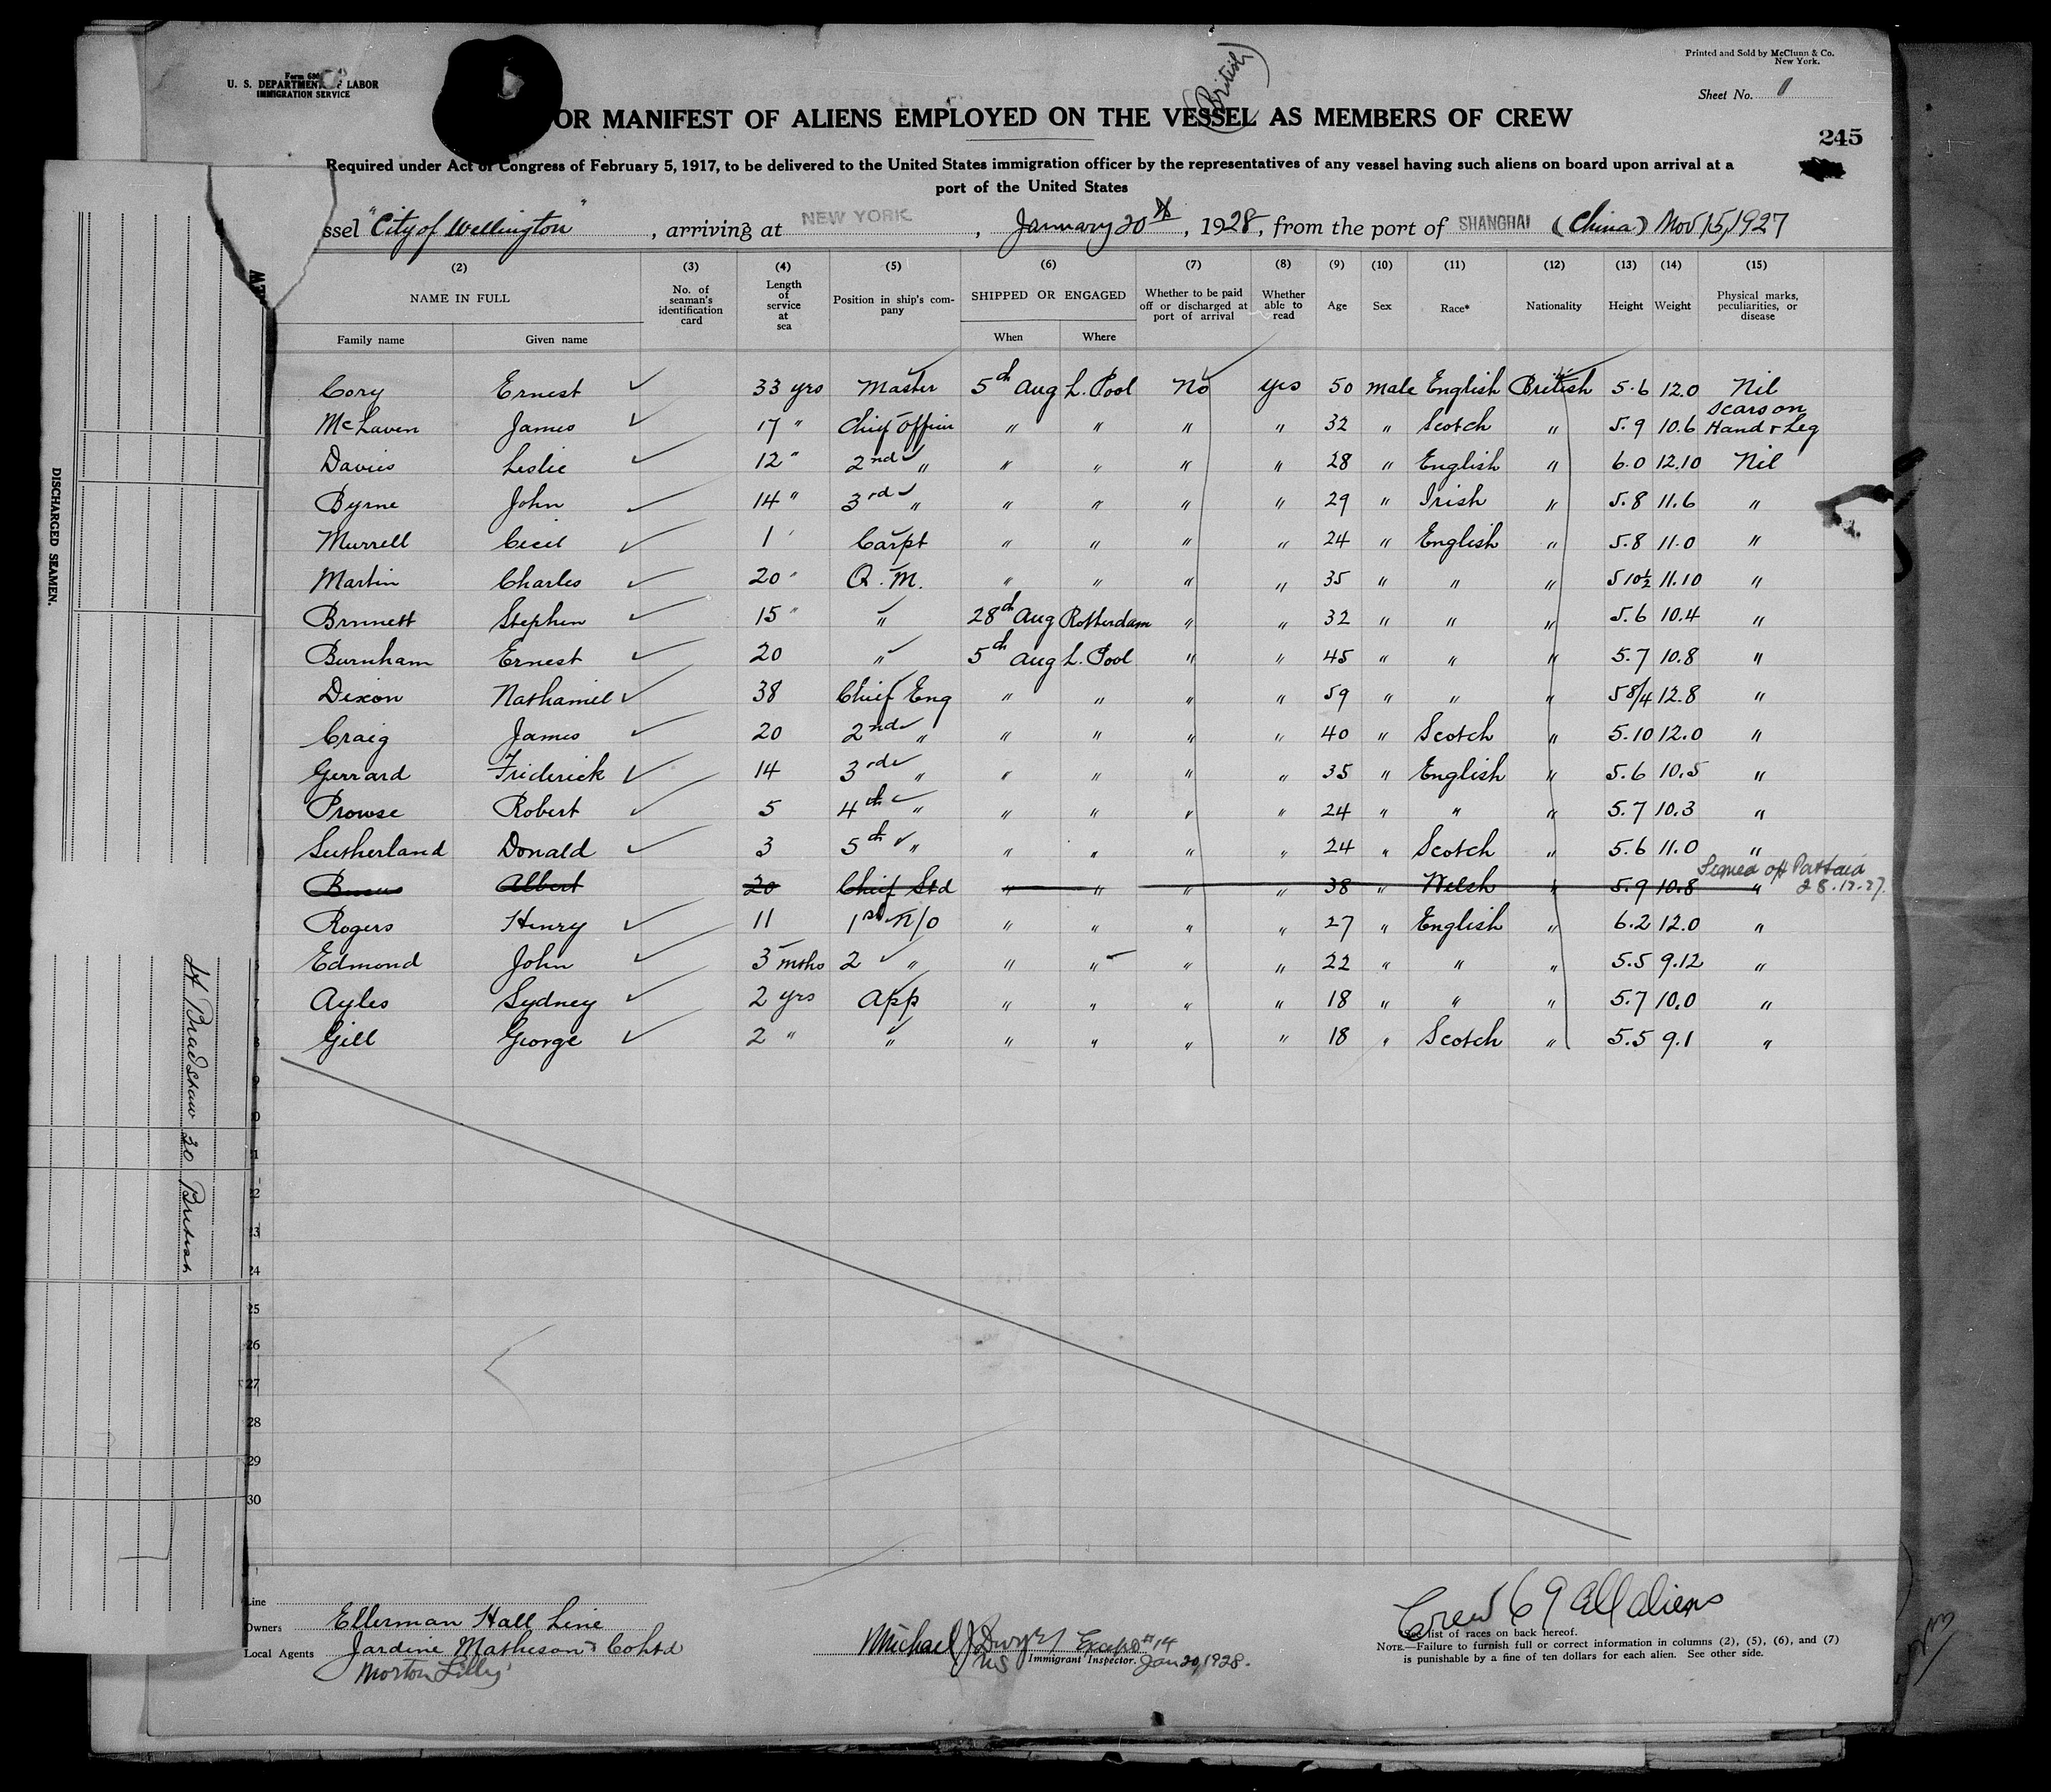 Form 680
U. S. DEPARTMENT OF LABOR
IMMIGRATION SERVICE
Printed and Sold by McClunn & Co.
New York.
Sheet No. 1
(British)
OR MANIFEST OF ALIENS EMPLOYED ON THE VESSEL AS MEMBERS OF CREW
245
Required under Act of Congress of February 5, 1917, to be delivered to the United States immigration officer by the representatives of any vessel having such aliens on board upon arrival at a
port of the United States
ssel "City of Wellington", arriving at NEW YORK, January 20th, 1928, from the port of SHANGHAI (China) Nov 15, 1927
(2) (3) (4) (5) (6) (7) (8) (9) (10) (11) (12) (13) (14) (15)
NAME IN FULL No. of seaman's identification card Length of service at sea Position in ship's company SHIPPED OR ENGAGED Whether to be paid off or discharged at port of arrival Whether able to read Age Sex Race* Nationality Height Weight Physical marks, peculiarities, or disease
Family name Given name When Where
Cory Ernest ✓ 33 yrs Master 5th Aug L. Pool No yes 50 male English British 5.6 12.0 Nil
McLaven James ✓ 17 " Chief Officer " " " " 32 " Scotch " 5.9 10.6 Scars on Hand & Leg
Davies Leslie ✓ 12 " 2nd " " " " " 28 " English " 6.0 12.10 Nil
Byrne John ✓ 14 " 3rd " " " " " 29 " Irish " 5.8 11.6 "
Murrell Cecil ✓ 1 ' Carpt " " " " 24 " English " 5.8 11.0 "
Martin Charles ✓ 20 " Q. M. " " " " 35 " " " 5 10½ 11.10 "
Brunett Stephen ✓ 15 " " 28th Aug Rotterdam " " 32 " " " 5.6 10.4 "
Burnham Ernest ✓ 20 " 5th Aug L. Pool " " 45 " " " 5.7 10.8 "
Dixon Nathaniel ✓ 38 Chief Eng " " " " 59 " " " 5 8/4 12.8 "
Craig James ✓ 20 2nd " " " " " 40 " Scotch " 5.10 12.0 "
Gerrard Friderick ✓ 14 3rd " " " " " 35 " English " 5.6 10.5 "
Prowse Robert ✓ 5 4th " " " " " 24 " " " 5.7 10.3 "
Sutherland Donald ✓ 3 5th " " " " " 24 " Scotch " 5.6 11.0 "
Albert 20 Chief Std " " " " 38 " Welsh " 5.9 10.8 " Signed off 28.12.27
Rogers Henry ✓ 11 1st W/O " " " " 27 " English " 6.2 12.0 "
Edmond John ✓ 3 mths 2 " " " " " 22 " " " 5.5 9.12 "
Ayles Sydney ✓ 2 yrs App " " " " 18 " " " 5.7 10.0 "
Gill George ✓ 2 " " " " " " 18 " Scotch " 5.5 9.1 "
9
10
1
2
13
24
25
26
27
28
29
30
DISCHARGED SEAMEN.
H Bradshaw 20 British
Line
Owners Ellerman Hall Line
Local Agents Jardine Matheson & Co Ltd
Morton Lilly
Michael J Dwyer Except #14
Immigrant Inspector. Jan 20, 1928.
Crew 69 all aliens
*See list of races on back hereof.
NOTE.—Failure to furnish full or correct information in columns (2), (5), (6), and (7)
is punishable by a fine of ten dollars for each alien. See other side.